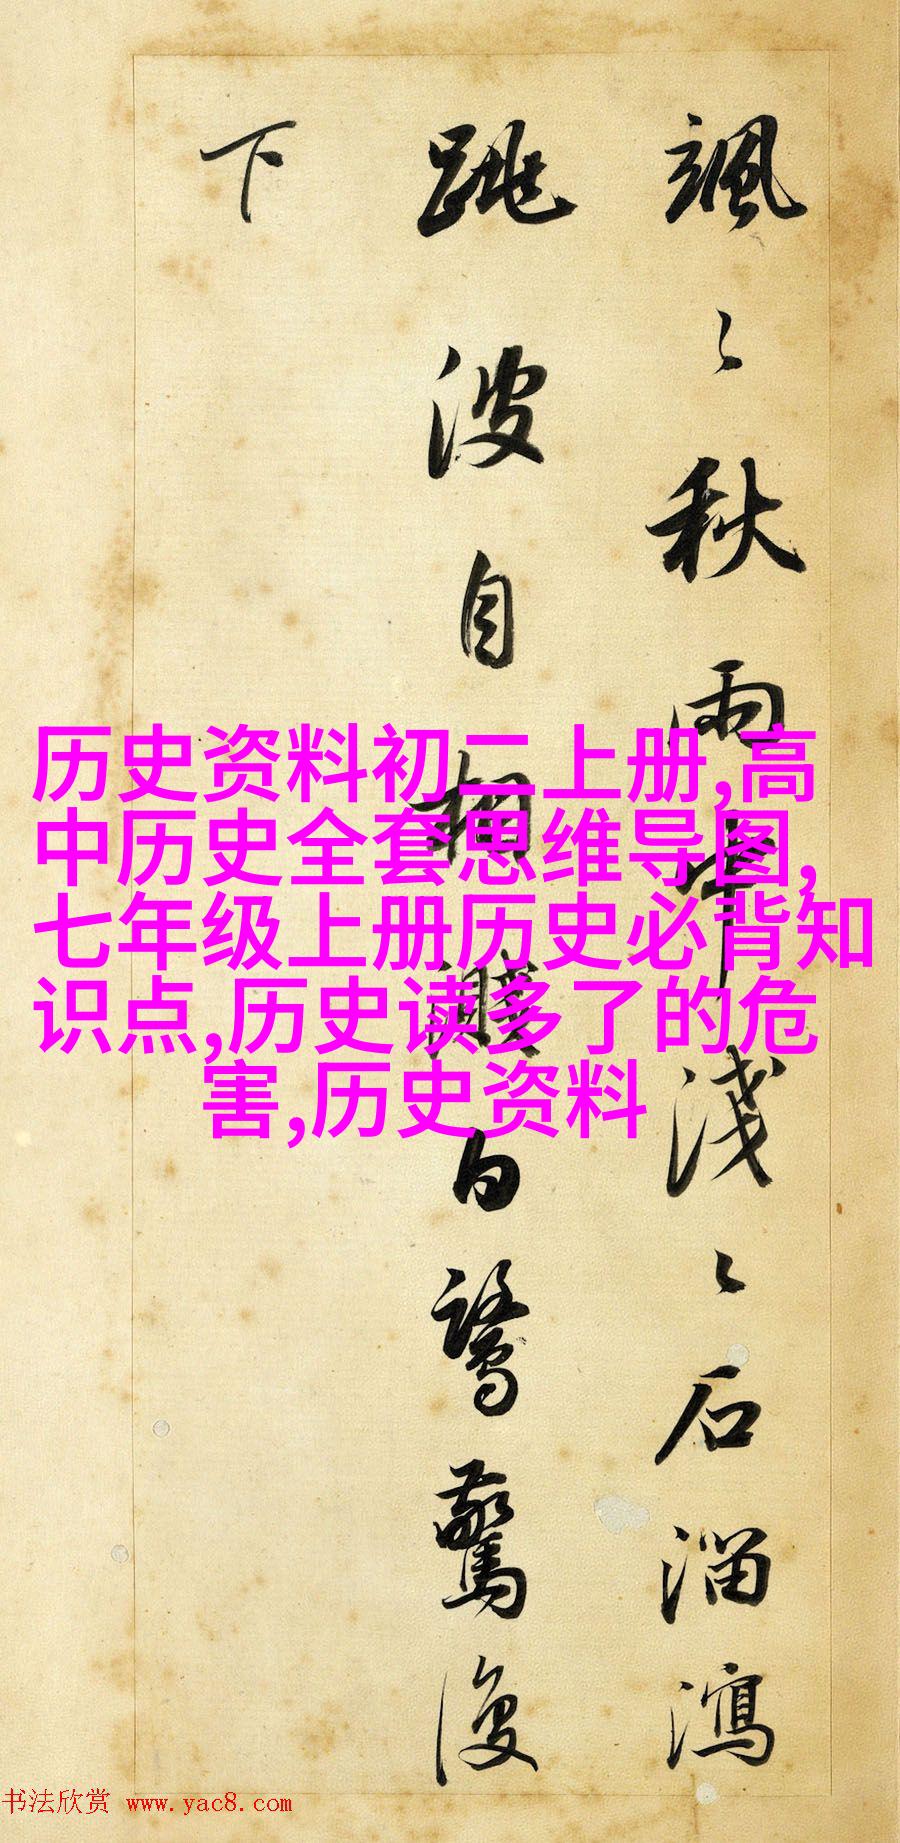 颯〻秋雨中淺〻石溜瀉
跳波自相濺白鷺驚復
下
历史资料初二上册,高
中历史全套思维导图,
七年级上册历史必背知
识点,历史读多了的危
害,历史资料
书法欣赏 www.yac8.com